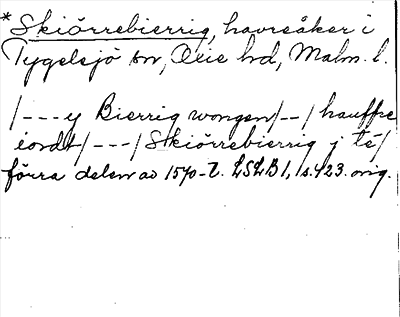 * Skiörrebierrig, havreåker i
Tygelsjö sn, Oxie hd, Malm. l.
/---y Bierrig wongen/--/hauffre
iordt/---/Skiörrebierrig j té/
förra delen av 1570-t. LSLB 1, s. 423. orig.